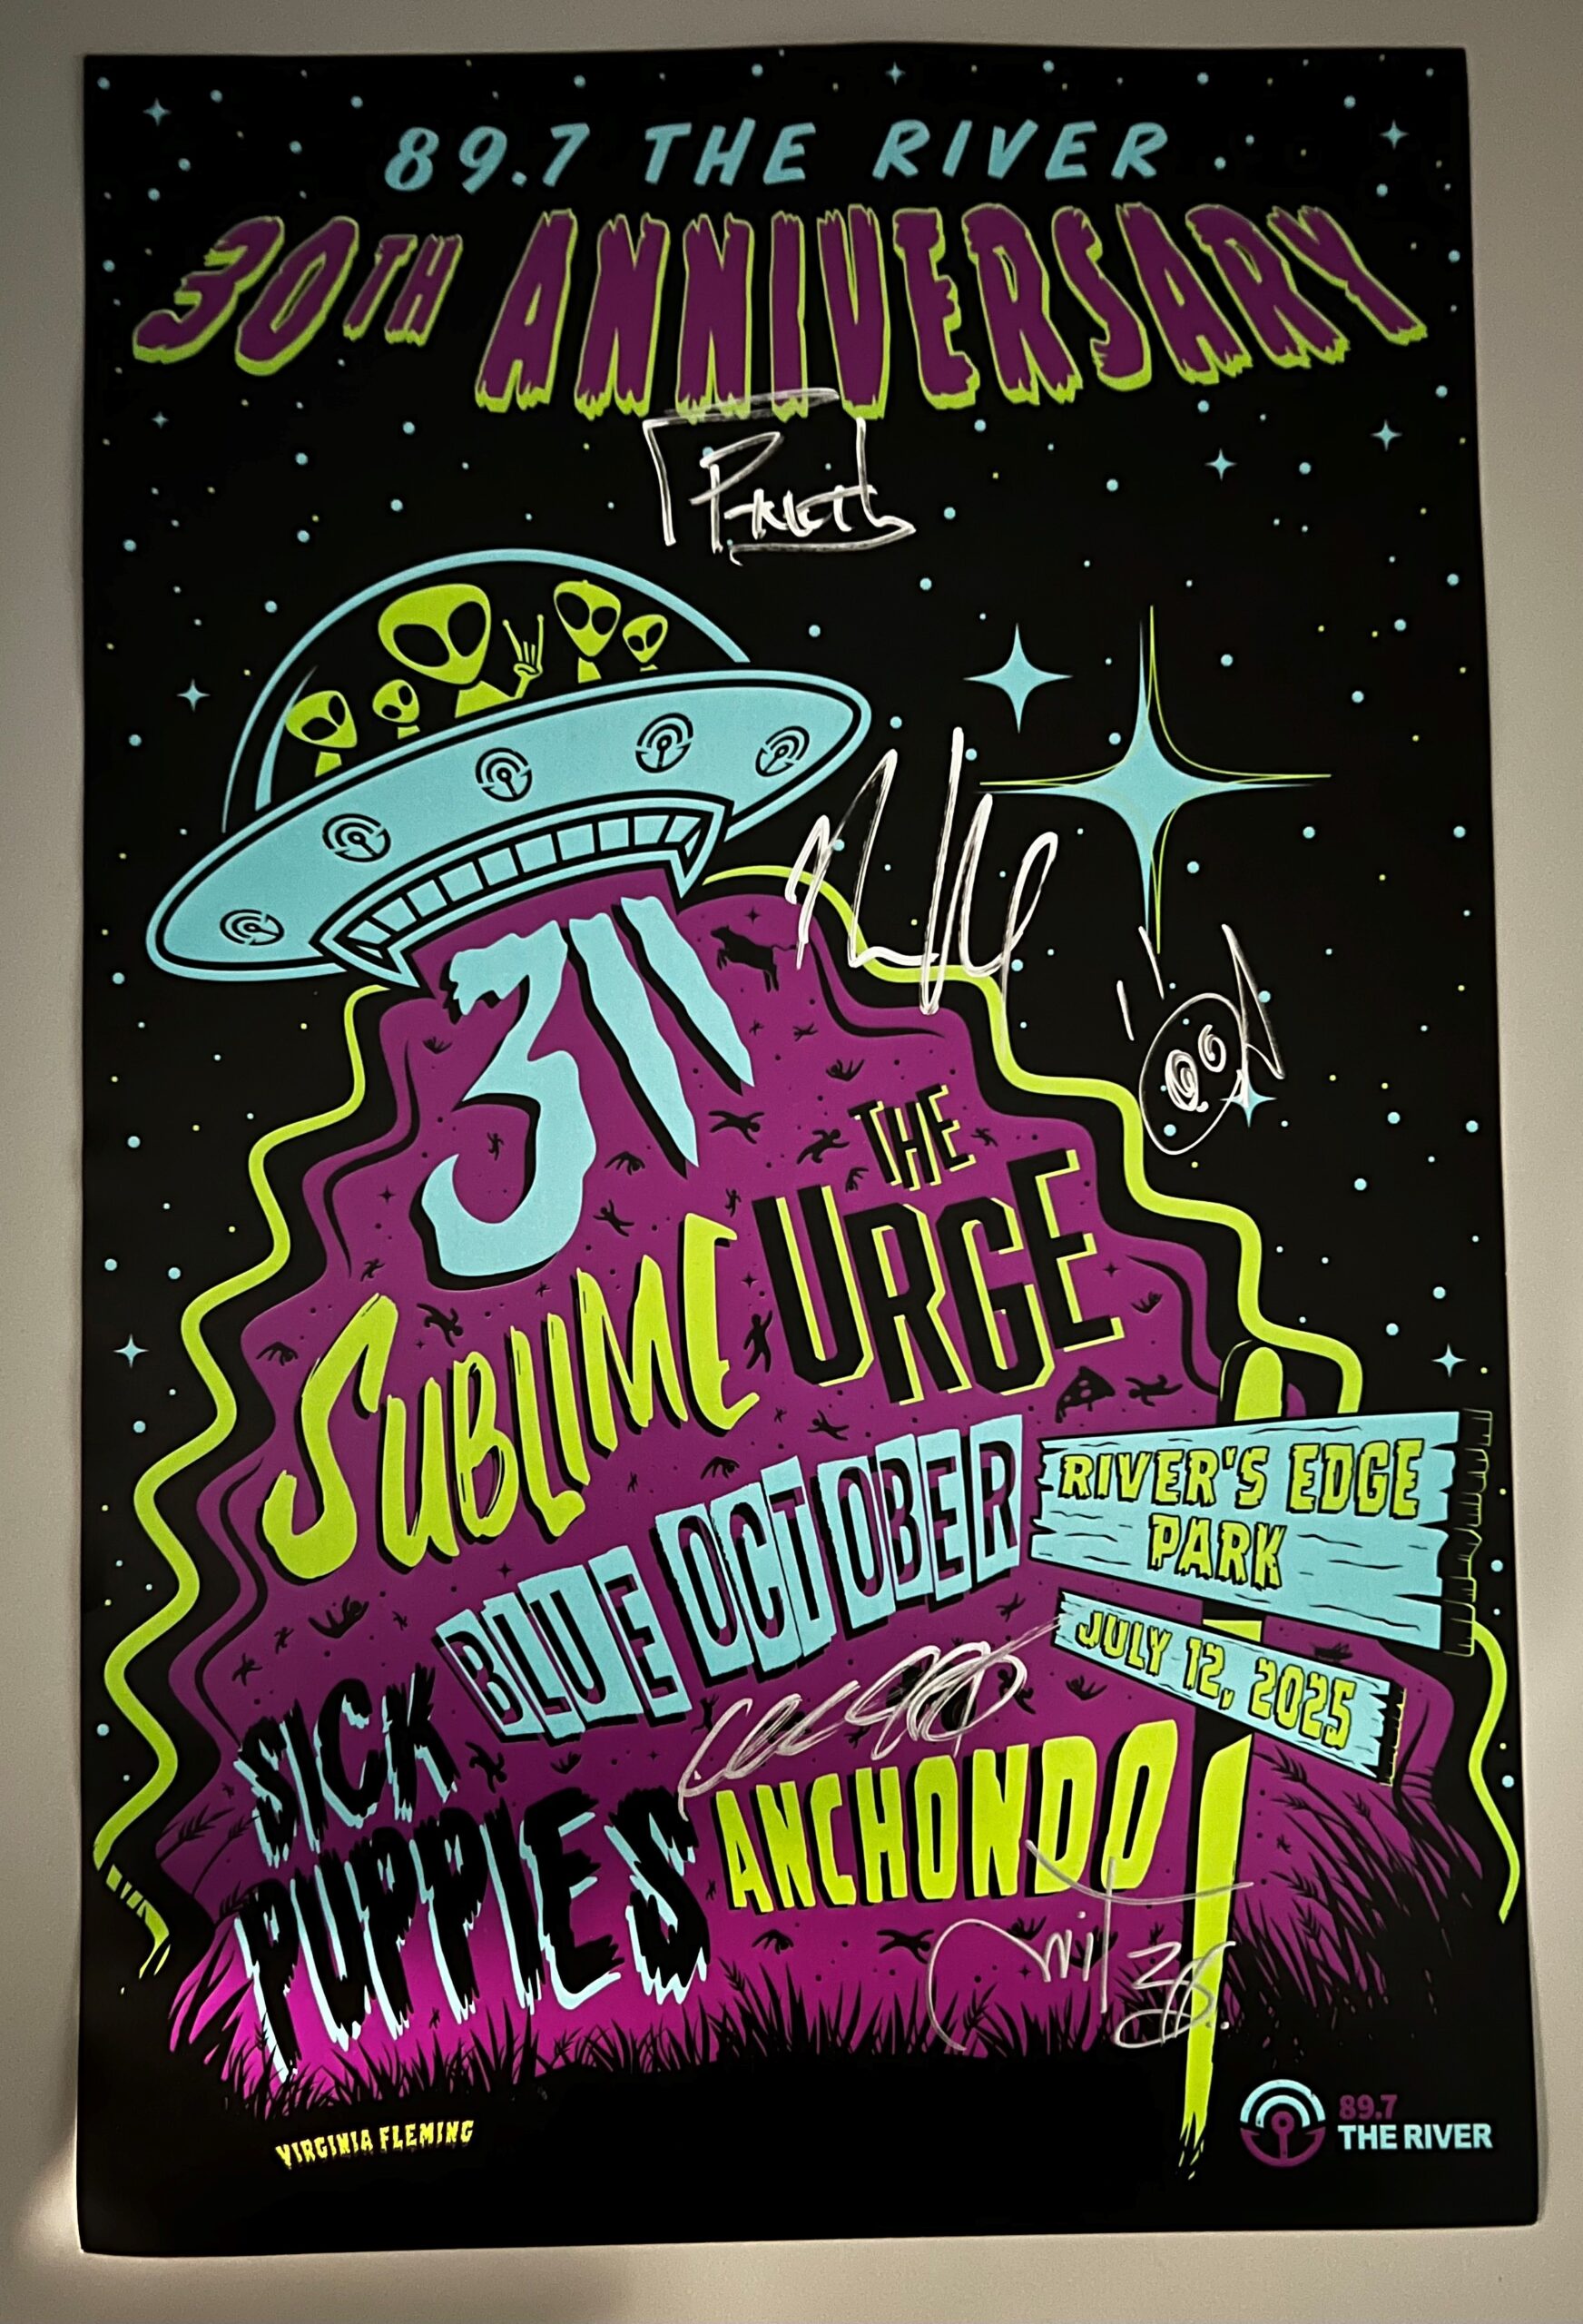 89.7 THE RIVER
30TH ANNIVERSARY
311
THE
URGE
SUBLIME
BLUE OCTOBER
RIVER'S EDGE
PARK
JULY 12, 2025
SICK
PUPPIES
ANCHONDO
VIRGINIA FLEMING
89.7
THE RIVER